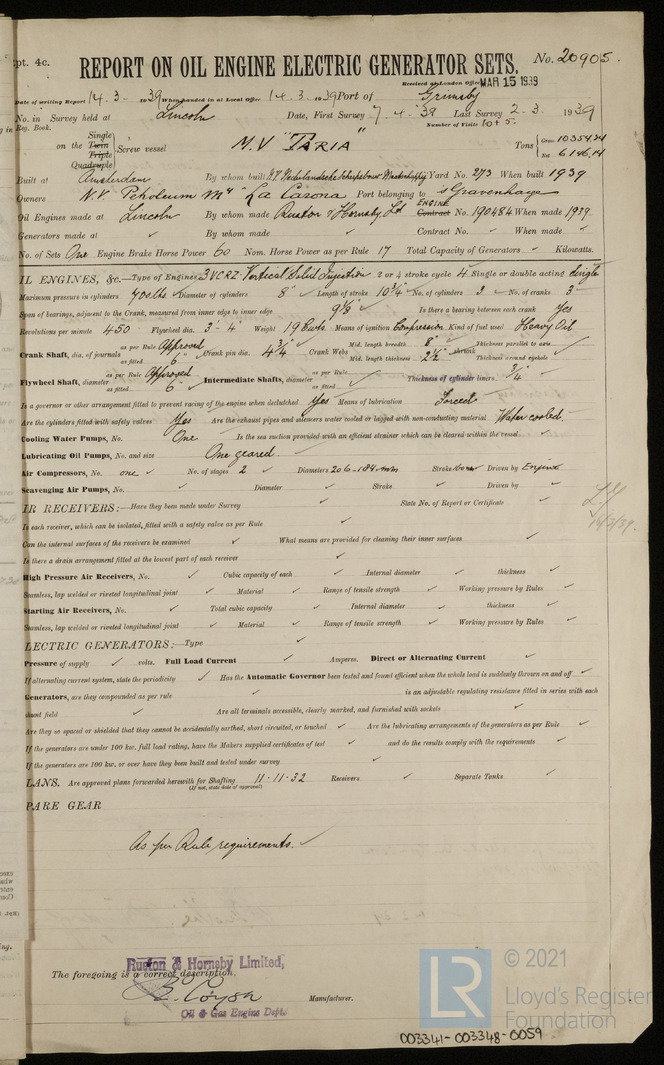 pt. 4c.
REPORT ON OIL ENGINE ELECTRIC GENERATOR SETS. No. 20905.
Received at London Office MAR 15 1939
Date of writing Report 14.3- 1939 When handed in at Local Office 14.3. 1939 Port of Grimsby
No. in Survey held at Lincoln Date, First Survey 7.4.'38 Last Survey 2.3. 1939
Reg. Book. Number of Visits 10+5
Single
on the Twin Screw vessel M.V "TARIA" Tons Gross 10354,24
Triple
Quadruple Net 6146,14
Built at Amsterdam By whom built N.V. Nederlandsche Scheepsbouw Maatschappij Yard No. 273 When built 1939
Owners N.V. Petroleum My "La Corona" Port belonging to 's Gravenhage
Oil Engines made at Lincoln By whom made Ruston & Hornsby Ltd ENGINE Contract No. 190484 When made 1939.
Generators made at ✓ By whom made ✓ Contract No. ✓ When made ✓
No. of Sets One Engine Brake Horse Power 60 Nom. Horse Power as per Rule 17 Total Capacity of Generators ✓ Kilowatts.
IL ENGINES, &c.—Type of Engines 3VCRZ. Vertical Solid Injection 2 or 4 stroke cycle 4 Single or double acting Single
Maximum pressure in cylinders 700 lbs Diameter of cylinders 8" Length of stroke 10¾" No. of cylinders 3 No. of cranks 3
Span of bearings, adjacent to the Crank, measured from inner edge to inner edge 9⅛" Is there a bearing between each crank Yes
Revolutions per minute 450 Flywheel dia. 3'-4" Weight 19 Cwts Means of ignition Compression Kind of fuel used Heavy Oil
Crank Shaft, dia. of journals as per Rule Approved as fitted 6" Crank pin dia. 4¾" Crank Webs Mid. length breadth 8" Thickness parallel to axis
Mid. length thickness 2½" shrunk Thickness around eyehole ✓
Flywheel Shaft, diameter as per Rule Approved as fitted 6" Intermediate Shafts, diameter as per Rule as fitted Thickness of cylinder liners ¾"
Is a governor or other arrangement fitted to prevent racing of the engine when declutched Yes Means of lubrication Forced
Are the cylinders fitted with safety valves Yes Are the exhaust pipes and silencers water cooled or lagged with non-conducting material Water cooled.
Cooling Water Pumps, No. One Is the sea suction provided with an efficient strainer which can be cleared within the vessel ✓
Lubricating Oil Pumps, No. and size One geared.
Air Compressors, No. one No. of stages 2 Diameters 206-184 mm Stroke Driven by Engine
Scavenging Air Pumps, No. Diameter ✓ Stroke ✓ Driven by ✓
IR RECEIVERS:—Have they been made under Survey ✓ State No. of Report or Certificate ✓
Is each receiver, which can be isolated, fitted with a safety valve as per Rule ✓
Can the internal surfaces of the receivers be examined ✓ What means are provided for cleaning their inner surfaces ✓
Is there a drain arrangement fitted at the lowest part of each receiver ✓
High Pressure Air Receivers, No. ✓ Cubic capacity of each ✓ Internal diameter ✓ thickness ✓
Seamless, lap welded or riveted longitudinal joint ✓ Material ✓ Range of tensile strength ✓ Working pressure by Rules ✓
Starting Air Receivers, No. ✓ Total cubic capacity ✓ Internal diameter ✓ thickness ✓
Seamless, lap welded or riveted longitudinal joint ✓ Material ✓ Range of tensile strength ✓ Working pressure by Rules ✓
LECTRIC GENERATORS:—Type ✓
Pressure of supply ✓ volts. Full Load Current ✓ Amperes. Direct or Alternating Current ✓
If alternating current system, state the periodicity ✓ Has the Automatic Governor been tested and found efficient when the whole load is suddenly thrown on and off ✓
Generators, are they compounded as per rule ✓ is an adjustable regulating resistance fitted in series with each
shunt field ✓ Are all terminals accessible, clearly marked, and furnished with sockets ✓
Are they so spaced or shielded that they cannot be accidentally earthed, short circuited, or touched ✓ Are the lubricating arrangements of the generators as per Rule ✓
If the generators are under 100 kw. full load rating, have the Makers supplied certificates of test ✓ and do the results comply with the requirements ✓
If the generators are 100 kw. or over have they been built and tested under survey ✓
LANS. Are approved plans forwarded herewith for Shafting 11-11-32 Receivers ✓ Separate Tanks ✓
(If not, state date of approval)
PARE GEAR
As per Rule requirements. ✓
Ruston & Hornsby Limited,
The foregoing is a correct description.
Manufacturer.
Oil & Gas Engine Dept.
LR
© 2021
Lloyd's Register
Foundation
003341-003348-0059